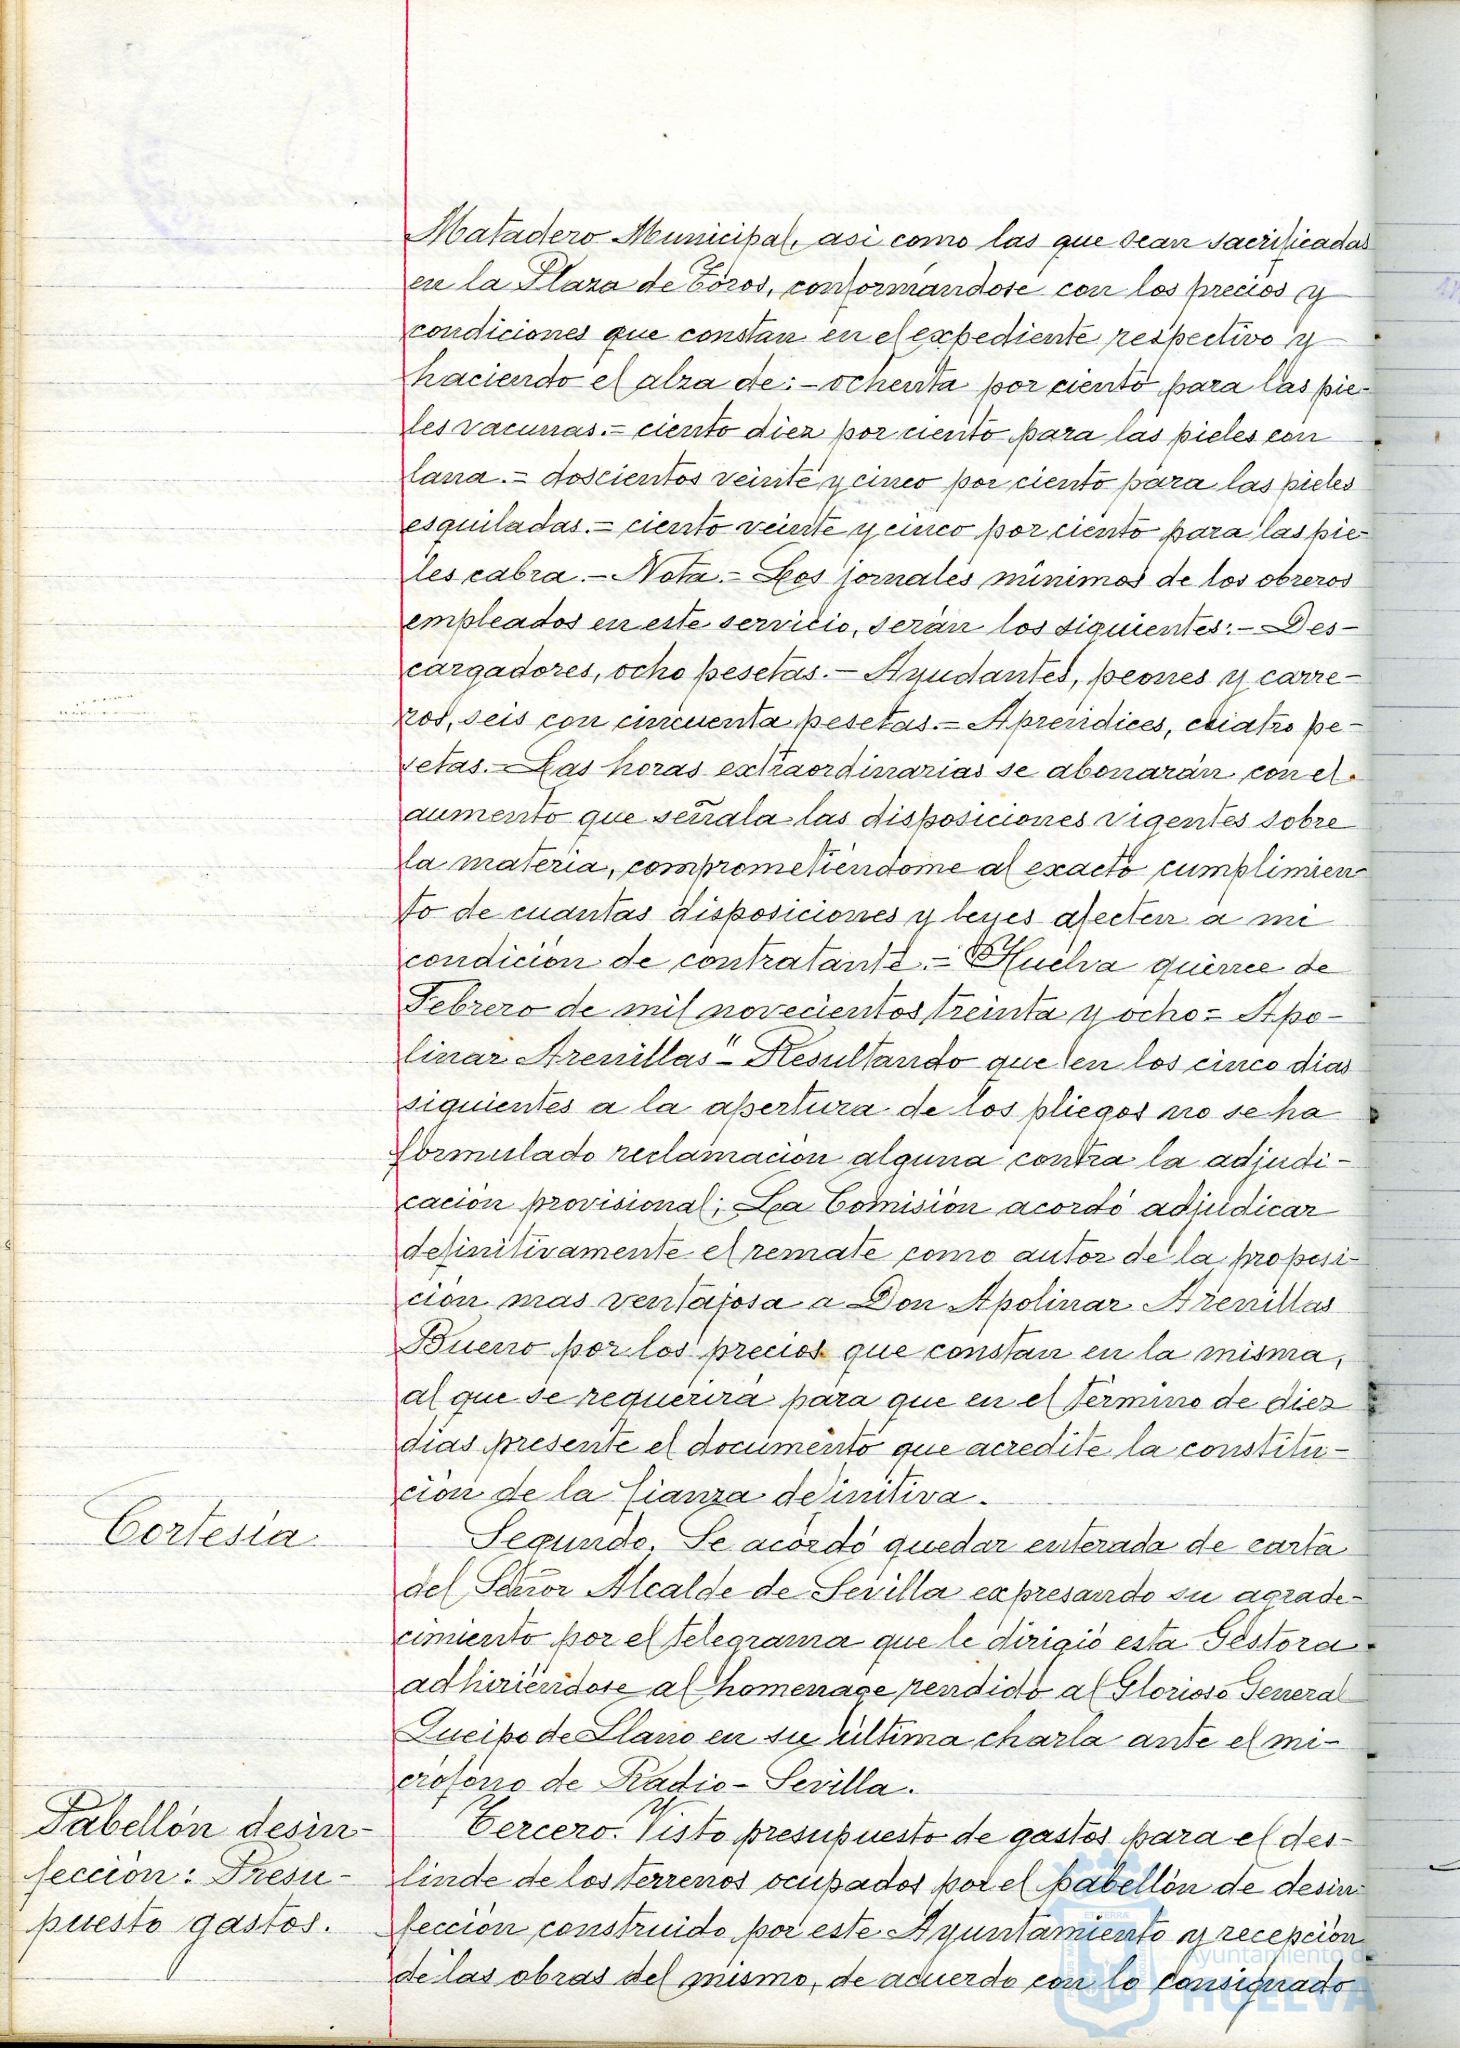 Matadero Municipal, asi como las que sean sacrificadas
en la Plaza de Toros, conformándose con los precios y
condiciones que constan en el expediente respectivo y
haciendo el alza de:- ochenta por ciento para las pie-
les vacunas.= ciento diez por ciento para las pieles con
lana.= doscientos veinte y cinco por ciento para las pieles
esquiladas.= ciento veinte y cinco por ciento para las pie-
les cabra.- Nota.- Los jornales mínimos de los obreros
empleados en este servicio, serán los siguientes:- Des-
cargadores, ocho pesetas.- Ayudantes, peones y carre-
ros, seis con cincuenta pesetas.= Aprendices, cuatro pe-
setas.- Las horas extraordinarias se abonarán con el
aumento que señala las disposiciones vigentes sobre
la materia, comprometiéndome al exacto cumplimien-
to de cuantas disposiciones y leyes afecten a mi
condición de contratante.= Huelva quince de
Febrero de mil novecientos treinta y ocho= Apo-
linar Arenillas"- Resultando que en los cinco dias
siguientes a la apertura de los pliegos no se ha
formulado reclamación alguna contra la adjudi-
cación provisional; La Comisión acordó adjudicar
definitivamente el remate como autor de la proposi-
ción mas ventajosa a Don Apolinar Arenillas
Bueno por los precios que constan en la misma,
al que se requerirá para que en el término de diez
dias presente el documento que acredite la constitu-
ción de la fianza definitiva.
Cortesía
Segundo. Se acordó quedar enterada de carta
del Señor Alcalde de Sevilla expresando su agrade-
cimiento por el telegrama que le dirigió esta Gestora
adhiriéndose al homenage rendido al Glorioso General
Queipo de Llano en su última charla ante el mi-
crófono de Radio-Sevilla.
Pabellón desin-
fección: Presu-
puesto gastos.
Tercero. Visto presupuesto de gastos para el des-
linde de los terrenos ocupados por el pabellón de desin-
fección construido por este Ayuntamiento y recepción
de las obras del mismo, de acuerdo con lo consignado
Ayuntamiento de
HUELVA